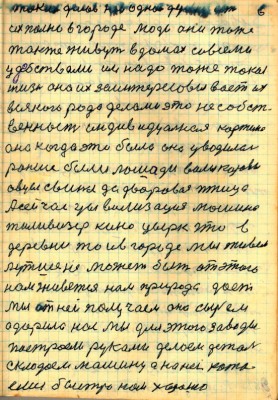 таких делов ни одной души нет 6
их полно в городе люди они тоже
также живут в домах совсеми
удобствами им надо тоже такая
жизь она их заинтересовывает их
всякого рода делами это не собст-
венность индивидуальная картина
она когда это было она уводилась
раньше были лошади волы коровы
овцы свиньи да дворовая птица
А сейчас цывилизация машина
тиливизер кино цырк это в
деревни то и в городе мы живем
лутше не может быть от этого
нам живется нам природа дает
мы от ней получаем она сырьем
одарила нас мы для этого заводы
построем руками делаем детал
складаем машину а на ней
ехать быстро нам хорошо